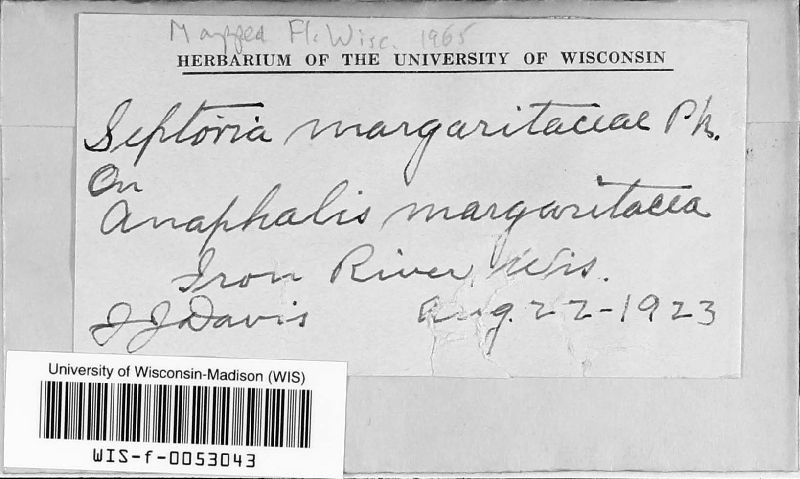 Mapped Fl. Wisc. 1965
HERBARIUM OF THE UNIVERSITY OF WISCONSIN
Septoria margaritaceae Pk.
On
Anaphalis margaritacea
Iron River, Wis.
J J Davis Aug. 22-1923
University of Wisconsin-Madison (WIS)
WIS-f-0053043